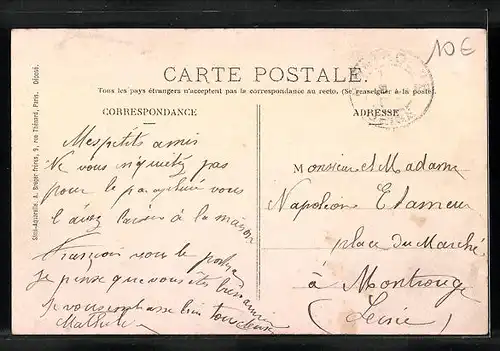 10€
CARTE POSTALE.
Tous les pays étrangers n'acceptent pas la correspondance au recto. (Se renseigner à la poste)
CORRESPONDANCE
ADRESSE
Simi-Aquarelle. A. Breger frères, 9, rue Thénard, Paris. Déposé.
Mes petits amis
Ne vous inquiètez pas
pour le parapluie vous
l'avez laissée à la maison
François vous le portera
Je pense que vous êtes bien
Je vous embrasse bien tous deux
Mathilde
Monsieur et Madame
Napoléon
place du Marché
à Montrouge
(Seine)